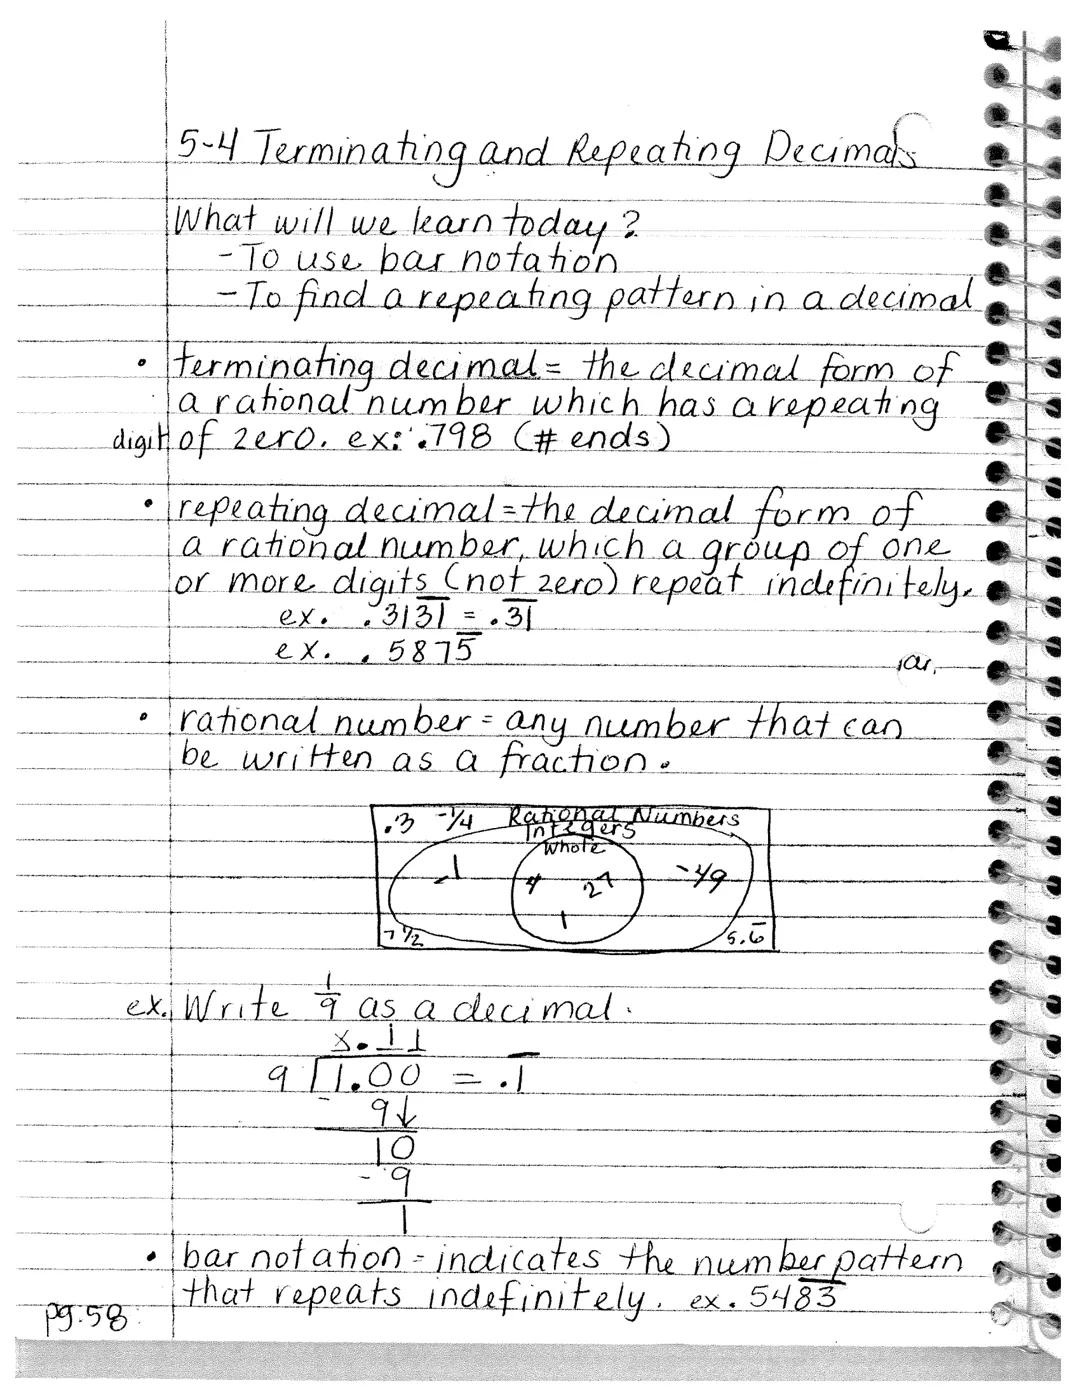 5-4 Terminating and Repeating Decimals
What will we learn today?
- To use bar notation
- To find a repeating pattern in a decimal
• terminating decimal = the decimal form of
a rational number which has a repeating
digit of zero. ex: .798 (# ends)
• repeating decimal = the decimal form of
a rational number, which a group of one
or more digits (not zero) repeat indefinitely.
ex. .313̅1̅ = .3̅1̅
ex. .5875̅
• rational number = any number that can
be written as a fraction.
.3 -1/4 Rational Numbers
Integers
Whole
-1 4 27
1
7 1/2 5.6̅
ex. Write 1/9 as a decimal.
x.11
9 1.00 = .1̅
- 9↓
10
- 9
1
• bar notation = indicates the number pattern
that repeats indefinitely. ex. 548̅3̅
pg. 58